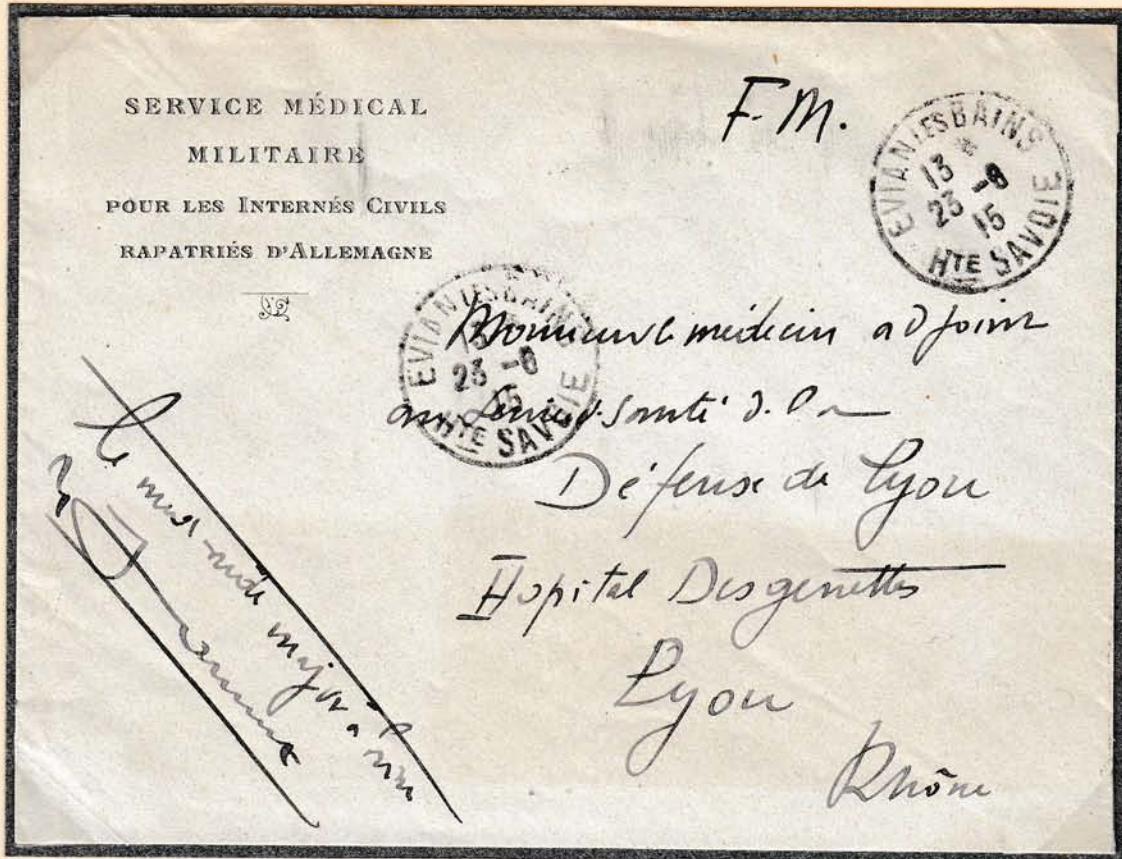 SERVICE MÉDICAL
MILITAIRE
POUR LES INTERNÉS CIVILS
RAPATRIÉS D'ALLEMAGNE
F. M.
EVIAN LES BAINS
13 *
23 -8
15
HTE SAVOIE
EVIAN LES BAINS
13
23 -8
15
HTE SAVOIE
Monsieur le médecin adjoint
au service de santé de la
Défense de Lyon
Hopital Desgenettes
Lyon
Rhône
le
major